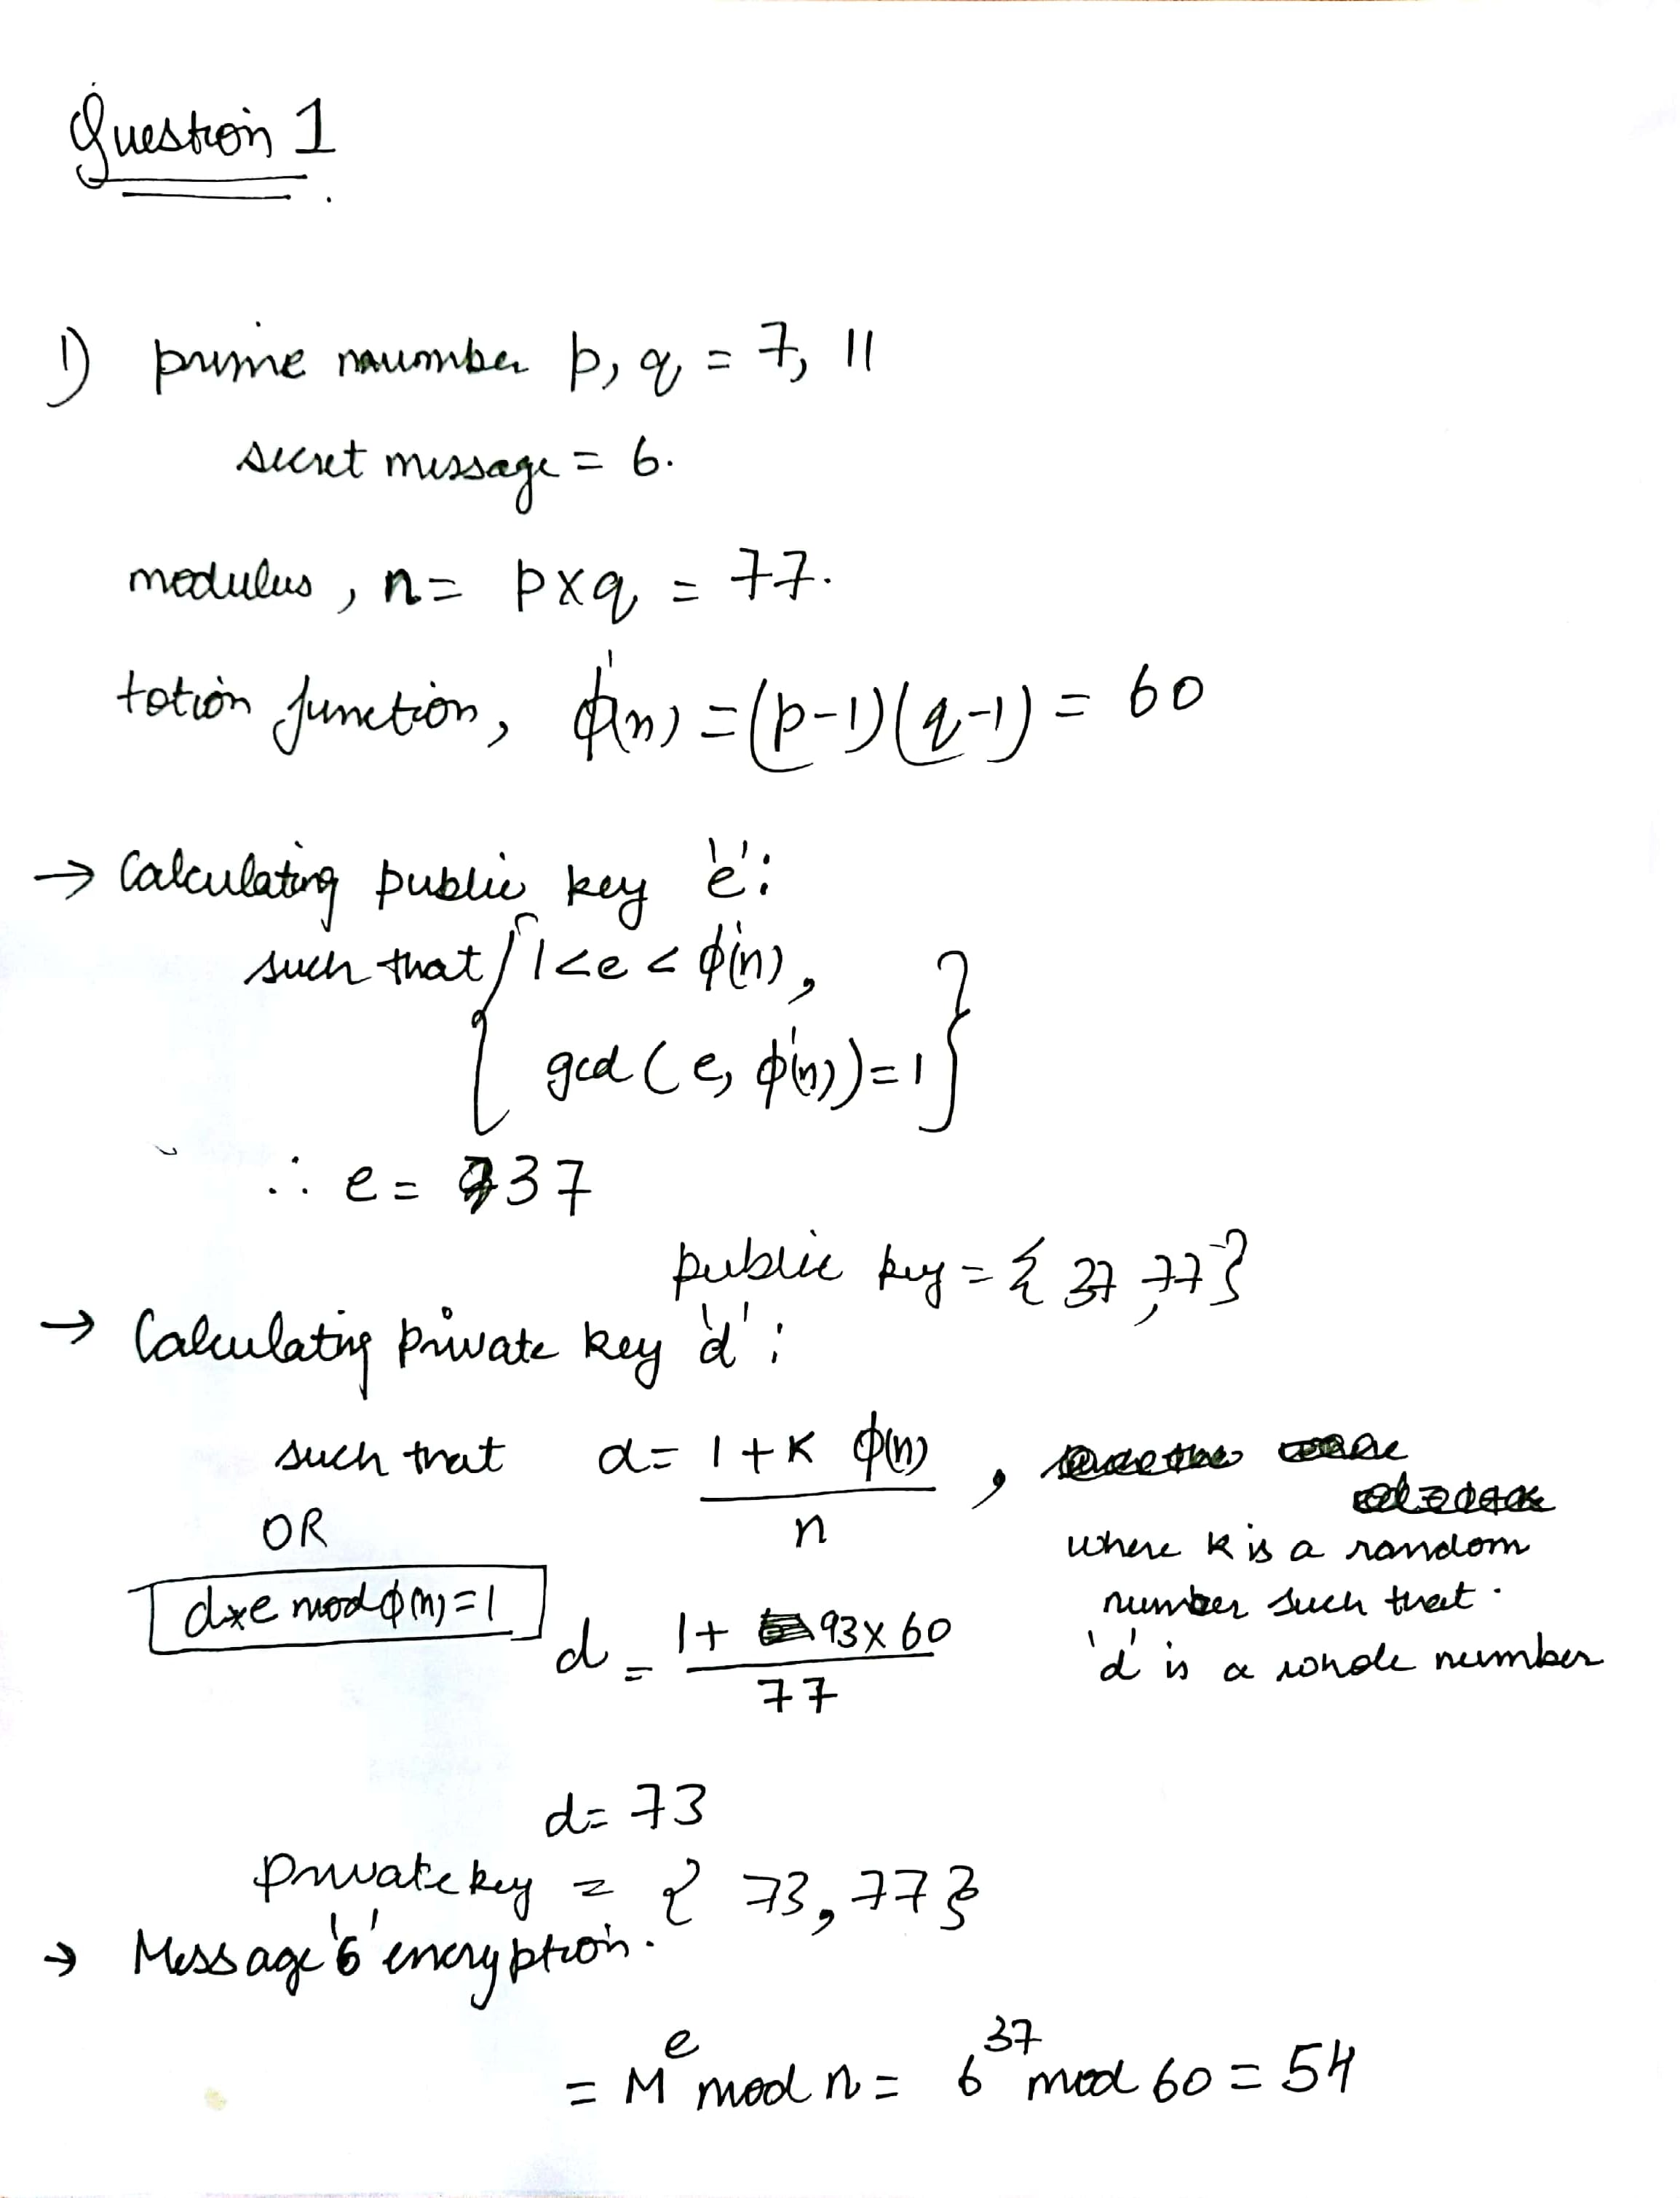 Question 1
1) prime number p, q = 7, 11
secret message = 6.
modulus, n = p×q = 77.
totion function, ϕ'(n) = (p-1)(q-1) = 60
→ Calculating public key 'e':
such that { 1<e<ϕ'(n),
gcd (e, ϕ'(n)) = 1 }
∴ e = 37
public key = { 37, 77 }
→ Calculating private key 'd':
such that d = 1 + K ϕ(n) / n ,
OR
where K is a random
d×e mod ϕ(n) = 1
number such that.
d = 1 + 93 × 60 / 77
'd' is a whole number
d = 73
Private key = { 73, 77 }
→ Message '6' encryption.
= M^e mod n = 6^37 mod 60 = 54